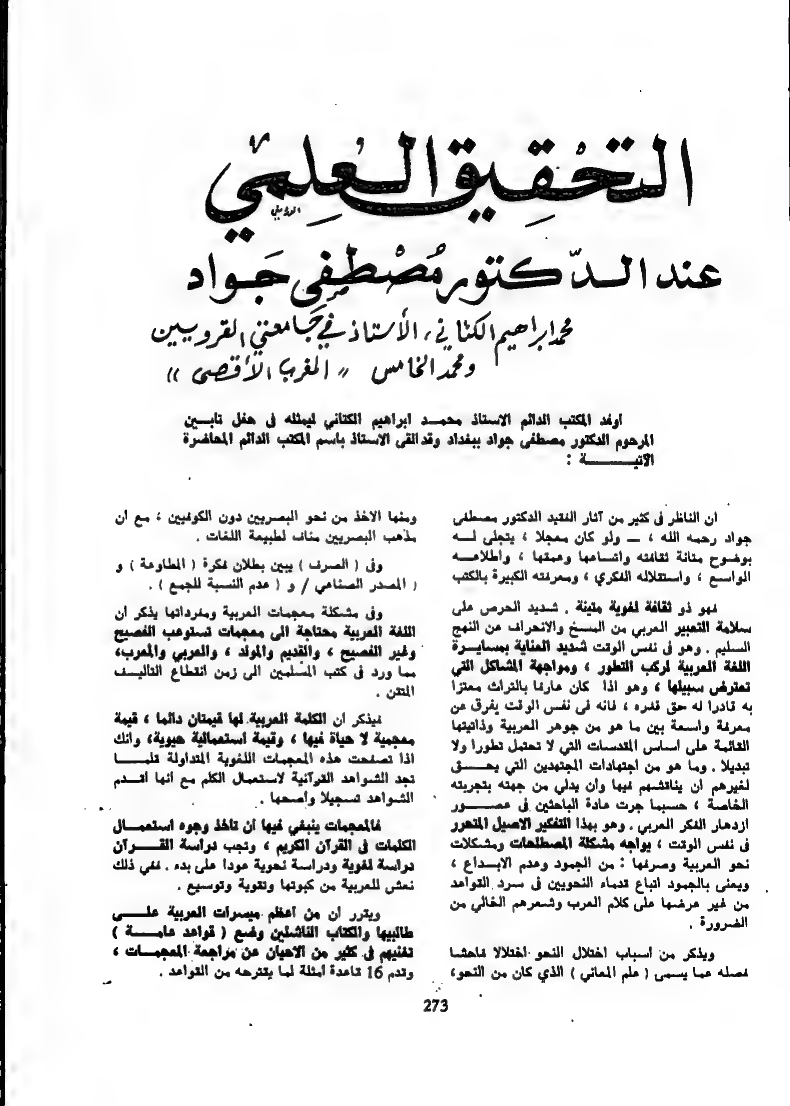 التحقيق العلمي
عند الدكتور مصطفى جواد
محمد ابراهيم الكتاني، الأستاذ في جامعتي القرويين
ومحمد الخامس « المغرب الأقصى »
اوفد المكتب الدائم الاستاذ محمــد ابراهيم الكتاني ليمثله فى حفل تابــين
المرحوم الدكتور مصطفى جواد ببغداد وقد القى الاستاذ باسم المكتب الدائم المحاضرة
الآتيــــــة :
ان الناظر فى كثير من آثار الفقيد الدكتور مصطفى
جواد رحمه الله ، ــ ولو كان معجلا ، يتجلى لــه
بوضوح متانة ثقافته واتساعها وعمقها ، واطلاعــه
الواسع ، واستقلاله الفكري ، ومعرفته الكبيرة بالكتب
فهو ذو ثقافة لغوية متينة . شديد الحرص على
سلامة التعبير العربي من المسخ والانحراف عن النهج
السليم . وهو فى نفس الوقت شديد العناية بمسايــرة
اللغة العربية لركب التطور ، ومواجهة المشاكل التي
تعترض سبيلها ، وهو اذا كان عارفا بالتراث معتزا
به قادرا له حق قدره ، فانه فى نفس الوقت يفرق عن
معرفة واسعة بين ما هو من جوهر العربية وذاتيتها
القائمة على اساس المقدسات التي لا تحتمل تطورا ولا
تبديلا . وما هو من اجتهادات المجتهدين التي يحــق
لغيرهم ان يناقشهم فيها وان يدلي من جهته بتجربته
الخاصة ، حسبما جرت عادة الباحثين فى عصــــور
ازدهار الفكر العربي . وهو بهذا التفكير الاصيل المتحرر
فى نفس الوقت ، يواجه مشكلة المصطلحات ومشكلات
نحو العربية وصرفها : من الجمود وعدم الابــداع ،
ويعنى بالجمود اتباع قدماء النحويين فى سرد القواعد
من غير عرضها على كلام العرب وشعرهم الخالي من
الضرورة .
ويذكر من اسباب اختلال النحو اختلالا فاحشا
فصله عما يسمى ( علم المعاني ) الذي كان من النحو،
ومنها الاخذ من نحو البصريين دون الكوفيين ، مع ان
مذهب البصريين مناف لطبيعة اللغات .
وفى ( الصرف ) يبين بطلان فكرة ( المطاوعة ) و
( المصدر الصناعي / و ( عدم النسبة للجمع ) .
وفى مشكلة معجمات العربية ومفرداتها يذكر ان
اللغة العربية محتاجة الى معجمات تستوعب الفصيح
وغير الفصيح ، والقديم والمولد ، والعربي والمعرب،
مما ورد فى كتب المسلمين الى زمن انقطاع التاليــف
المتقن .
فيذكر ان الكلمة العربية لها قيمتان دائما ، قيمة
معجمية لا حياة فيها ، وقيمة استعمالية حيوية، وانك
اذا تصفحت هذه المعجمات اللغوية المتداولة قلمــــا
تجد الشواهد القرآنية لاستعمال الكلم مع انها اقــدم
الشواهد تسجيلا واصحها .
فالمعجمات ينبغي فيها ان تاخذ وجوه استعمــال
الكلمات فى القرآن الكريم ، وتجب دراسة القـــرآن
دراسة لغوية ودراسة نحوية عودا على بدء . ففي ذلك
نعش للعربية من كبوتها وتقوية وتوسيع .
ويقرر ان من اعظم ميسرات العربية علــــى
طالبيها والكتاب الناشئين وضع ( قواعد عامــــة )
تغنيهم فى كثير من الاحيان عن مراجعة المعجمــات ،
وقدم 16 قاعدة امثلة لما يقترحه من القواعد .
273